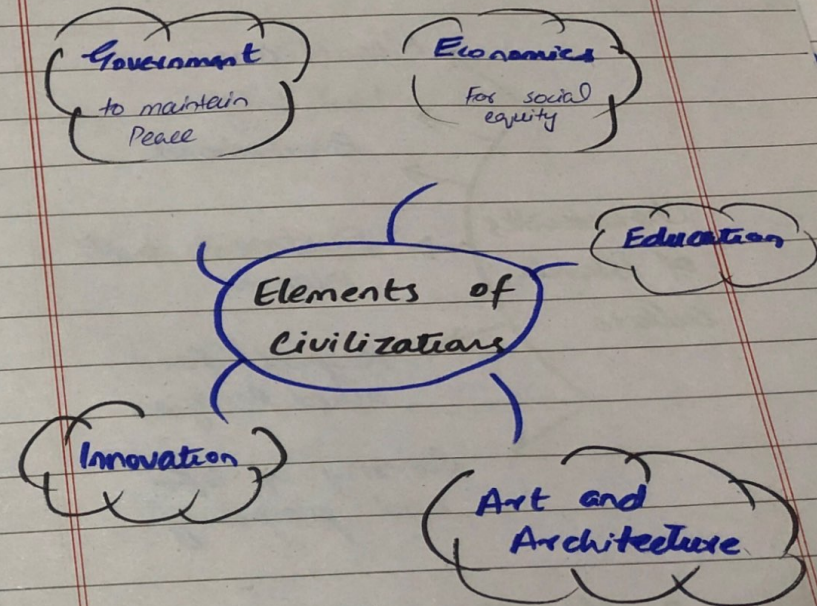 Government
to maintain
Peace
Economics
For social
equity
Education
Elements of
Civilizations
Innovation
Art and
Architecture